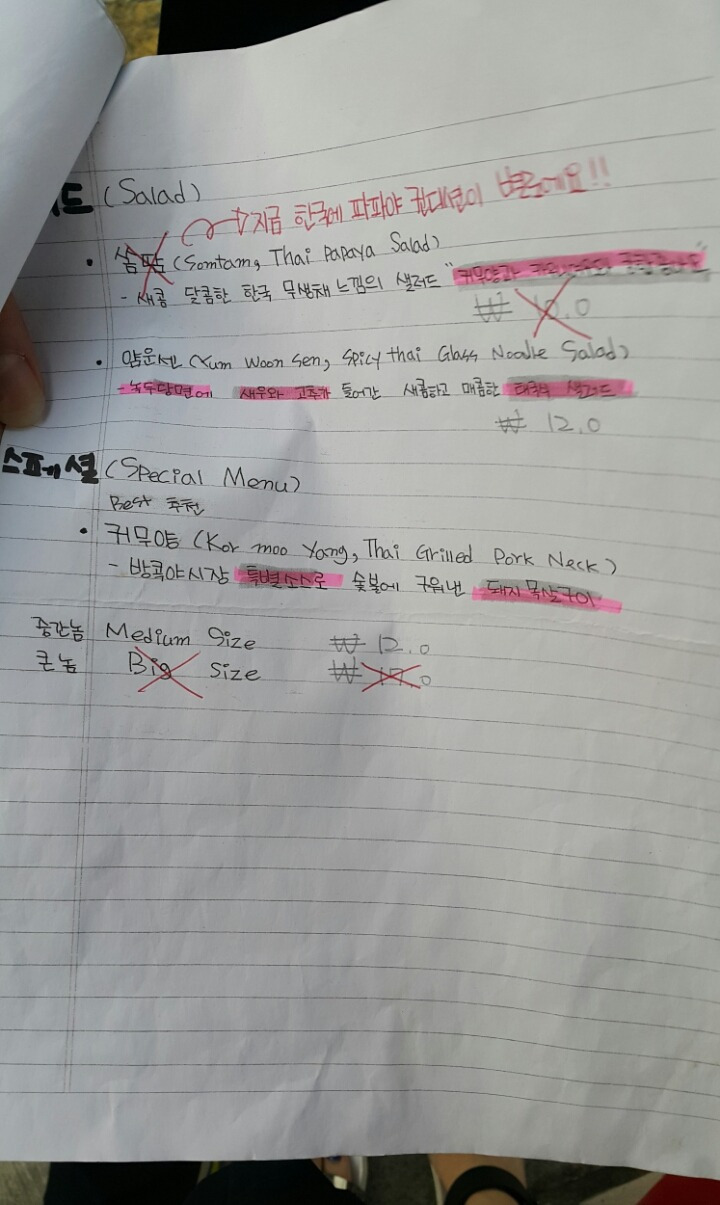 드 (Salad)
지금 한국에 파파야 컨디션이 별로에요!!
쏨땀 (Somtam, Thai Papaya Salad)
- 새콤 달콤한 한국 무생채 느낌의 샐러드
₩ 10.0
얌운센 (Yum Woon Sen, Spicy thai Glass Noodle Salad)
- 녹두당면에 새우와 고추가 들어간 새콤하고 매콤한 태국식 샐러드
₩ 12.0
스페셜 (Special Menu)
Best 추천
커무양 (Kor moo Yang, Thai Grilled Pork Neck)
- 방콕야시장 특별소스로 숯불에 구워낸 돼지목살구이
중간놈 Medium Size ₩ 12.0
큰놈 Big Size ₩ 17.0